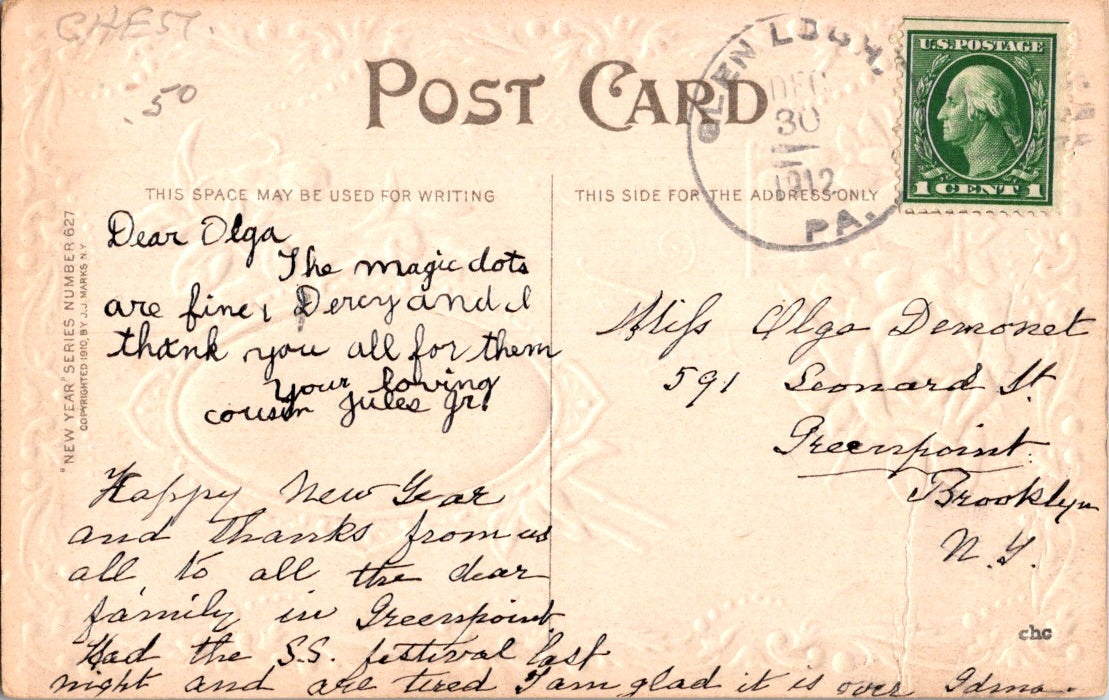 CHEST.
.50
POST CARD
GLEN LOCH,
DEC
30
1912
PA.
U.S. POSTAGE
1 CENT 1
THIS SPACE MAY BE USED FOR WRITING
THIS SIDE FOR THE ADDRESS ONLY
"NEW YEAR" SERIES NUMBER 627
COPYRIGHTED 1910, BY J.J. MARKS N.Y.
Dear Olga
The magic dots
are fine, Dercy and I
thank you all for them
Your loving
cousin Jules Jr.
Happy New Year
and thanks from us
all to all the dear
family in Greenpoint
Had the S.S. festival last
night and are tired I am glad it is over
Miss Olga Demonet
591 Leonard St.
Greenpoint.
Brooklyn
N.Y.
chc